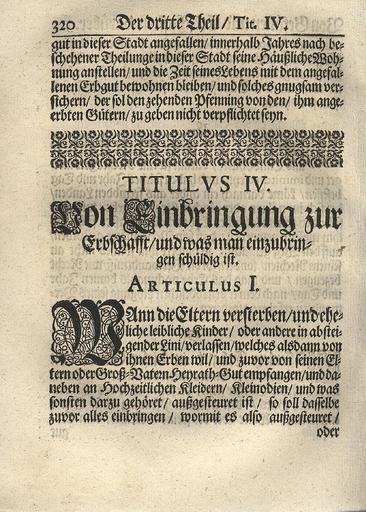 320 Der dritte Theil / Tit. IV.
gut in dieser Stadt angefallen / innerhalb Jahres nach be-
schehener Theilunge in dieser Stadt seine Häußliche Woh-
nung anstellen / und die Zeit seines Lebens mit dem angefal-
lenen Erbgut bewohnen bleiben / und solches gnugsam ver-
sichern / der sol den zehenden Pfenning von den / ihm ange-
erbten Gütern / zu geben nicht verpflichtet seyn.
TITULVS IV.
Von Einbringung zur
Erbschafft / und was man einzubrin-
gen schüldig ist.
ARTICULUS I.
WAnn die Eltern versterben / und ehe-
liche leibliche Kinder / oder andere in abstei-
gender Lini / verlassen / welches alsdann von
ihnen Erben wil / und zuvor von seinen El-
tern oder Groß-Vatern Heyrath-Gut empfangen / und da-
neben an Hochzeitlichen Kleidern / Kleinodien / und was
sonsten darzu gehöret / außgesteuret ist / so soll dasselbe
zuvor alles einbringen / wormit es also außgesteuret /
oder